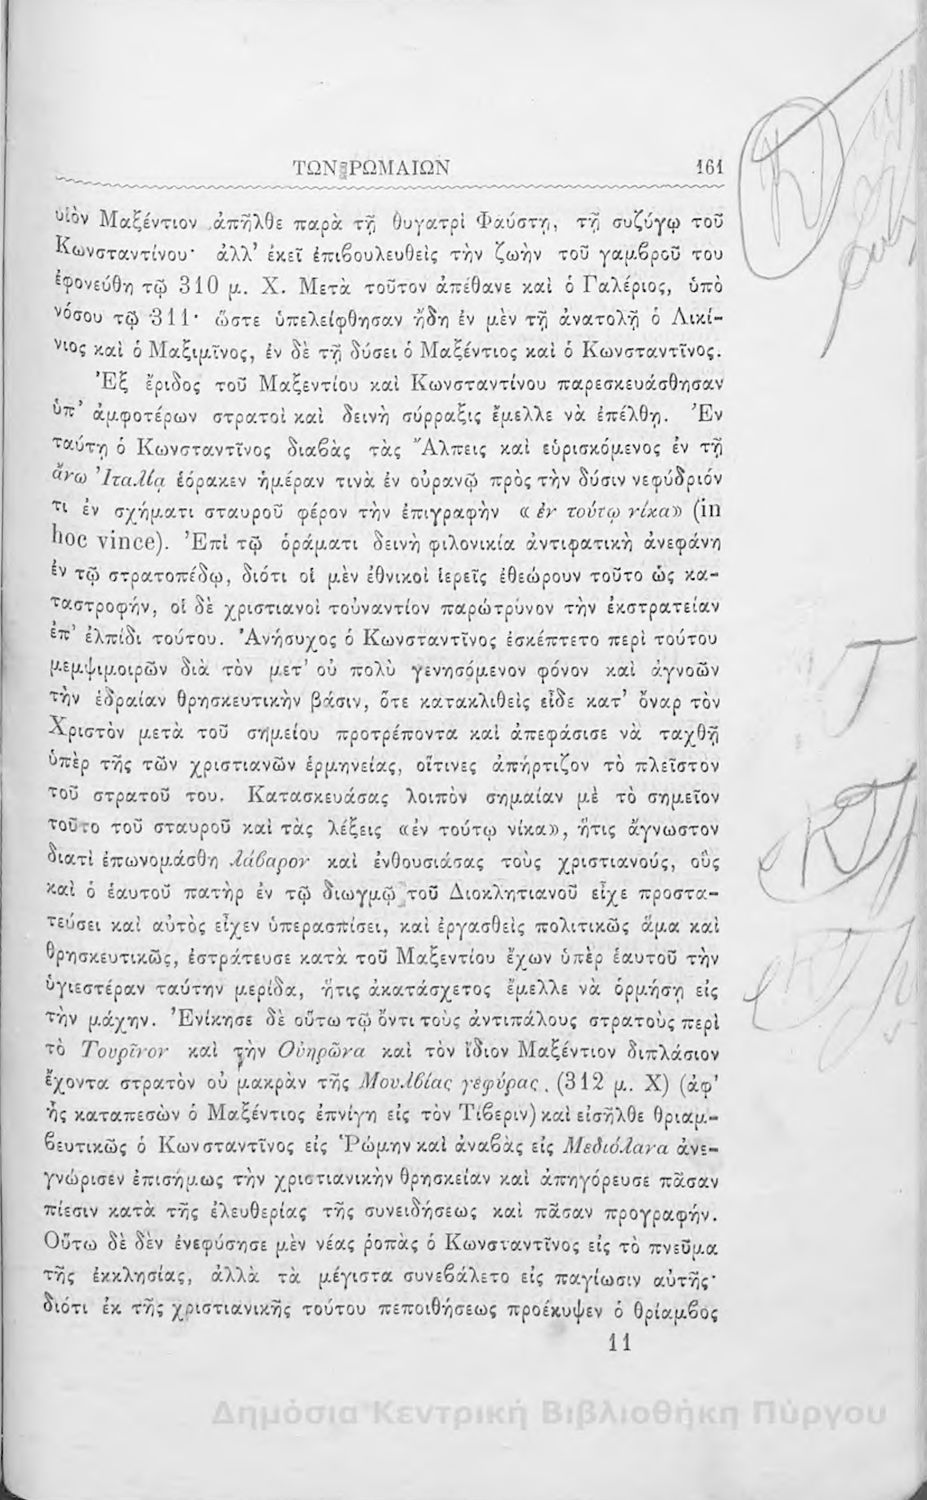 ΤΩΝ ΡΩΜΑΙΩΝ 161
υἱὸν Μαξέντιον ἀπῆλθε παρὰ τῇ θυγατρὶ Φαύστῃ, τῇ συζύγῳ τοῦ
Κωνσταντίνου· ἀλλ’ ἐκεῖ ἐπιβουλευθεὶς τὴν ζωὴν τοῦ γαμβροῦ του
ἐφονεύθη τῷ 310 μ. Χ. Μετὰ τοῦτον ἀπέθανε καὶ ὁ Γαλέριος, ὑπὸ
νόσου τῷ 311· ὥστε ὑπελείφθησαν ἤδη ἐν μὲν τῇ ἀνατολῇ ὁ Λικί-
νιος καὶ ὁ Μαξιμῖνος, ἐν δὲ τῇ δύσει ὁ Μαξέντιος καὶ ὁ Κωνσταντῖνος.
Ἐξ ἔριδος τοῦ Μαξεντίου καὶ Κωνσταντίνου παρεσκευάσθησαν
ὑπ’ ἀμφοτέρων στρατοὶ καὶ δεινὴ σύρραξις ἔμελλε νὰ ἐπέλθῃ. Ἐν
ταύτῃ ὁ Κωνσταντῖνος διαβὰς τὰς Ἄλπεις καὶ εὑρισκόμενος ἐν τῇ
ἄνω Ἰταλίᾳ ἑόρακεν ἡμέραν τινὰ ἐν οὐρανῷ πρὸς τὴν δύσιν νεφύδριόν
τι ἐν σχήματι σταυροῦ φέρον τὴν ἐπιγραφὴν « ἐν τούτῳ νίκα» (in
hoc vince). Ἐπὶ τῷ ὁράματι δεινὴ φιλονικία ἀντιφατικὴ ἀνεφάνη
ἐν τῷ στρατοπέδῳ, διότι οἱ μὲν ἐθνικοὶ ἱερεῖς ἐθεώρουν τοῦτο ὡς κα-
ταστροφήν, οἱ δὲ χριστιανοὶ τοὐναντίον παρώτρυνον τὴν ἐκστρατείαν
ἐπ’ ἐλπίδι τούτου. Ἀνήσυχος ὁ Κωνσταντῖνος ἐσκέπτετο περὶ τούτου
μεμψιμοιρῶν διὰ τὸν μετ’ οὐ πολὺ γενησόμενον φόνον καὶ ἀγνοῶν
τὴν ἑδραίαν θρησκευτικὴν βάσιν, ὅτε κατακλιθεὶς εἶδε κατ’ ὄναρ τὸν
Χριστὸν μετὰ τοῦ σημείου προτρέποντα καὶ ἀπεφάσισε νὰ ταχθῇ
ὑπὲρ τῆς τῶν χριστιανῶν ἑρμηνείας, οἵτινες ἀπήρτιζον τὸ πλεῖστον
τοῦ στρατοῦ του. Κατασκευάσας λοιπὸν σημαίαν μὲ τὸ σημεῖον
τοῦτο τοῦ σταυροῦ καὶ τὰς λέξεις «ἐν τούτῳ νίκα», ἥτις ἄγνωστον
διατὶ ἐπωνομάσθη λάβαρον καὶ ἐνθουσιάσας τοὺς χριστιανούς, οὓς
καὶ ὁ ἑαυτοῦ πατὴρ ἐν τῷ διωγμῷ τοῦ Διοκλητιανοῦ εἶχε προστα-
τεύσει καὶ αὐτὸς εἶχεν ὑπερασπίσει, καὶ ἐργασθεὶς πολιτικῶς ἅμα καὶ
θρησκευτικῶς, ἐστράτευσε κατὰ τοῦ Μαξεντίου ἔχων ὑπὲρ ἑαυτοῦ τὴν
ὑγιεστέραν ταύτην μερίδα, ἥτις ἀκατάσχετος ἔμελλε νὰ ὁρμήσῃ εἰς
τὴν μάχην. Ἐνίκησε δὲ οὕτω τῷ ὄντι τοὺς ἀντιπάλους στρατοὺς περὶ
τὸ Τουρῖνον καὶ τὴν Οὐηρῶνα καὶ τὸν ἴδιον Μαξέντιον διπλάσιον
ἔχοντα στρατὸν οὐ μακρὰν τῆς Μουλβίας γεφύρας. (312 μ. Χ) (ἀφ’
ἧς καταπεσὼν ὁ Μαξέντιος ἐπνίγη εἰς τὸν Τίβεριν) καὶ εἰσῆλθε θριαμ-
βευτικῶς ὁ Κωνσταντῖνος εἰς Ῥώμην καὶ ἀναβὰς εἰς Μεδιόλανα ἀνε-
γνώρισεν ἐπισήμως τὴν χριστιανικὴν θρησκείαν καὶ ἀπηγόρευσε πᾶσαν
πίεσιν κατὰ τῆς ἐλευθερίας τῆς συνειδήσεως καὶ πᾶσαν προγραφήν.
Οὕτω δὲ δὲν ἐνεφύσησε μὲν νέας ῥοπὰς ὁ Κωνσταντῖνος εἰς τὸ πνεῦμα
τῆς ἐκκλησίας, ἀλλὰ τὰ μέγιστα συνεβάλετο εἰς παγίωσιν αὐτῆς·
διότι ἐκ τῆς χριστιανικῆς τούτου πεποιθήσεως προέκυψεν ὁ θρίαμβος
11
Δημόσια Κεντρική Βιβλιοθήκη Πύργου